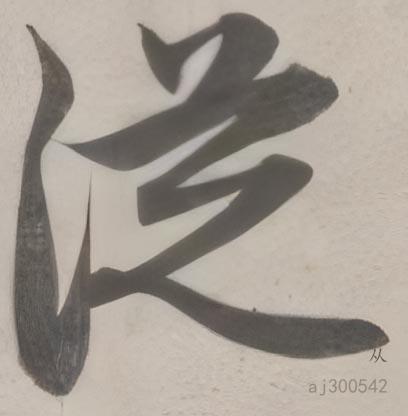 從
从
aj300542